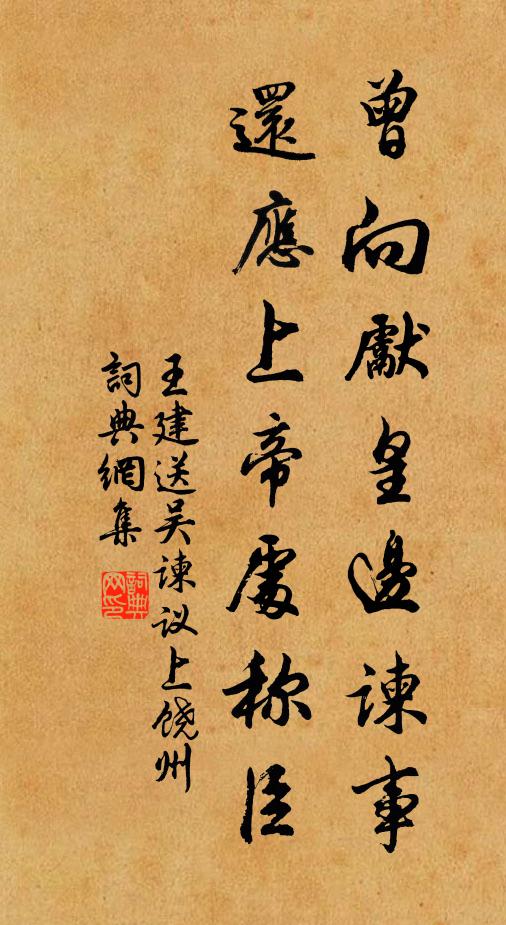 曾向獻皇邊諫事
還應上帝處称臣
王建送吴諫议上饶州
詞典網集
詞典网印